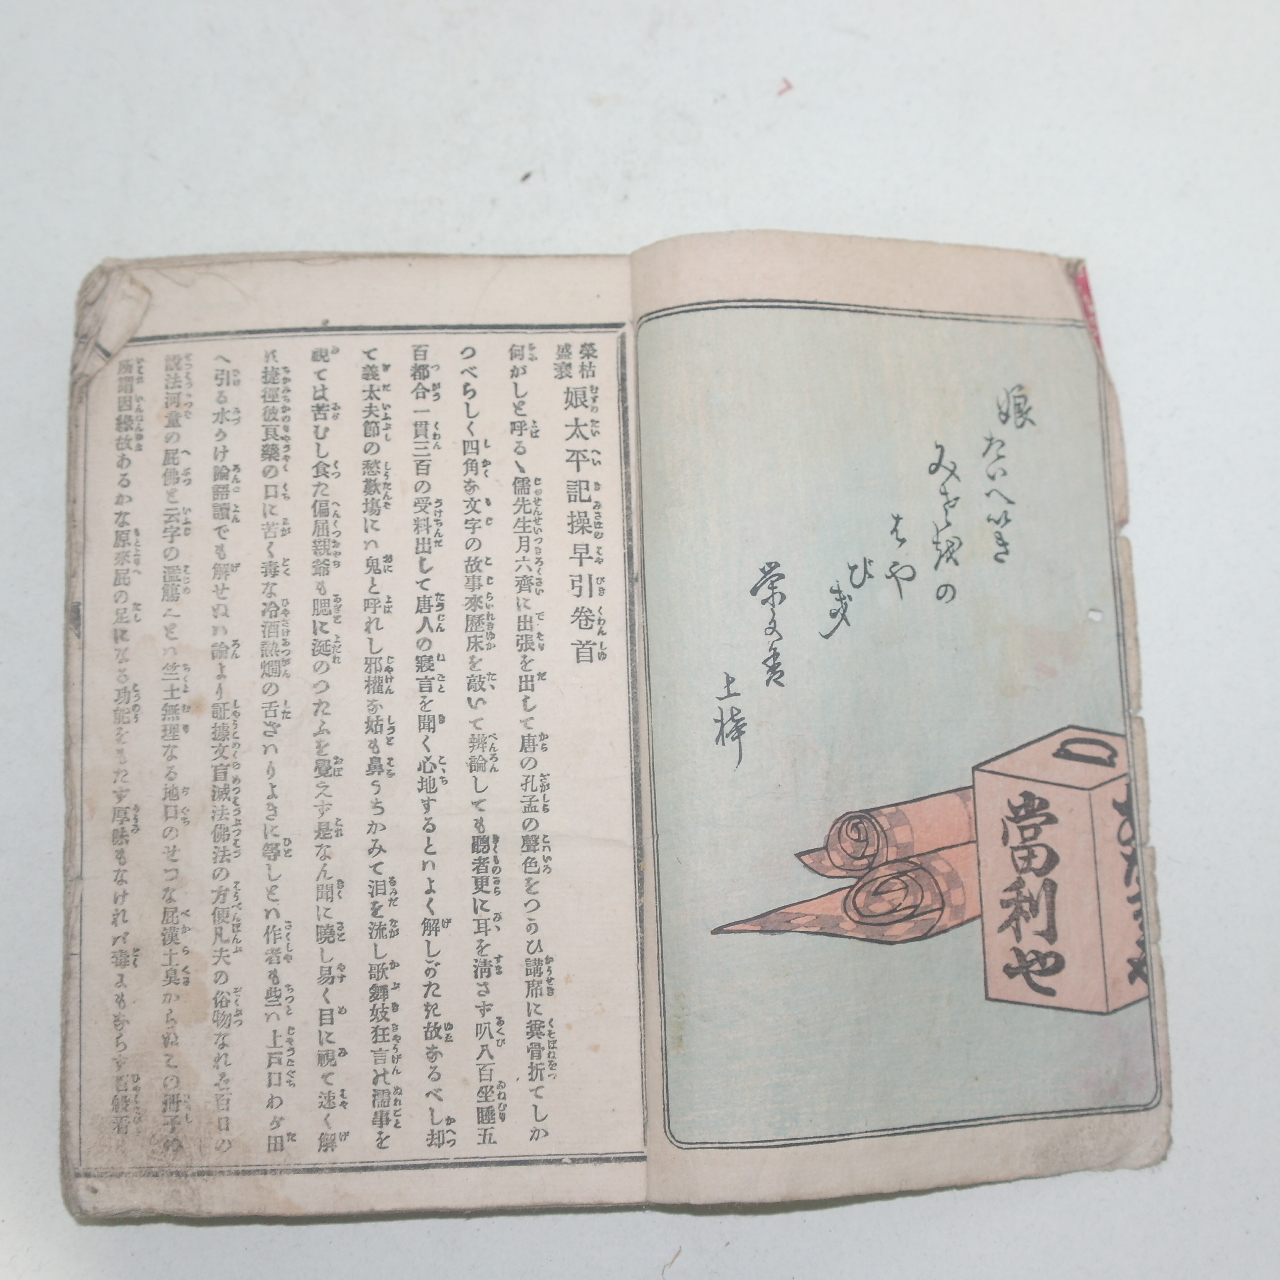 娘
たいへいき
みさほの
はや
びき
栄文舎
上梓
當利也
榮枯
盛衰
娘太平記操早引卷首
何がしと呼る丶儒先生月六齊に出張を出して唐の孔孟の聲色をつうひ講席に糞骨折てしか
つべらしく四角な文字の故事來歴床を敲いて辨論しても聽者更に耳を淸さず叭八百坐睡五
百都合一貫三百の受料出して唐人の寢言を聞く心地するといよく解しがたき故なるべし却
て義太夫節の愁歎塲にハ鬼と呼れし邪權な姑も鼻うちかみて泪を流し歌舞妓狂言の濡事を
視ては苦むし食た偏屈親爺も腮に涎のつたふを覺えず是なん聞に曉し易く目に視て速く解
捷徑彼良藥の口に苦く毒な冷酒熱燗の舌ざハりよきに等しとハ作者も些ハ上戸口わが田
へ引る水うけ論語讀でも解せぬハ論より証據文盲滅法佛法の方便凡夫の俗物なれる百口の
說法河童の屁佛と云字の濫觴
竺土無理なる地口のせつな屁漢土臭からぬての册子
所謂因縁故あるかな原來屁の足になる功能をもたず厚味もなけれバ毒